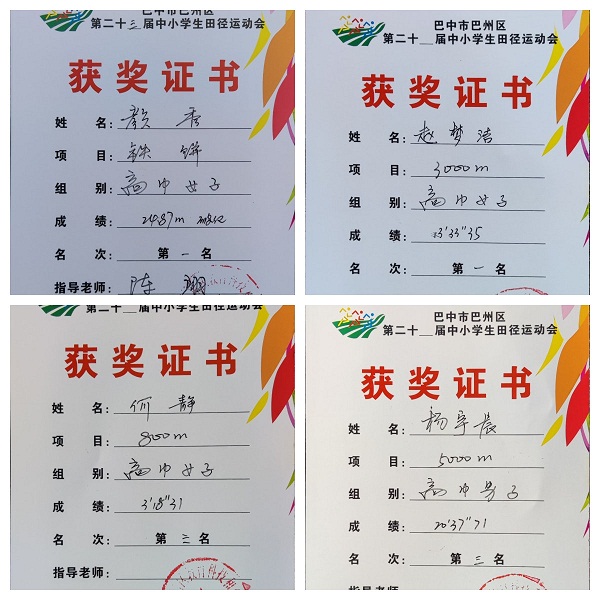 巴中市巴州区
第二十三届中小学生田径运动会
获奖证书
姓 名: 颜 香
项 目: 铁 饼
组 别: 高中女子
成 绩: 24.87m
名 次: 第 一 名
指导老师: 陈
巴中市巴州区
第二十__届中小学生田径运动会
获奖证书
姓 名: 赵 梦 洁
项 目: 3000m
组 别: 高中女子
成 绩: 13'33"35
名 次: 第 一 名
第二十__届中小学生田径运动会
获奖证书
姓 名: 何 静
项 目: 800m
组 别: 高中女子
成 绩: 3'18"31
名 次: 第 三 名
指导老师:
巴中市巴州区
第二十__届中小学生田径运动会
获奖证书
姓 名: 杨宇晨
项 目: 5000m
组 别: 高中男子
成 绩: 20'37"71
名 次: 第 三 名